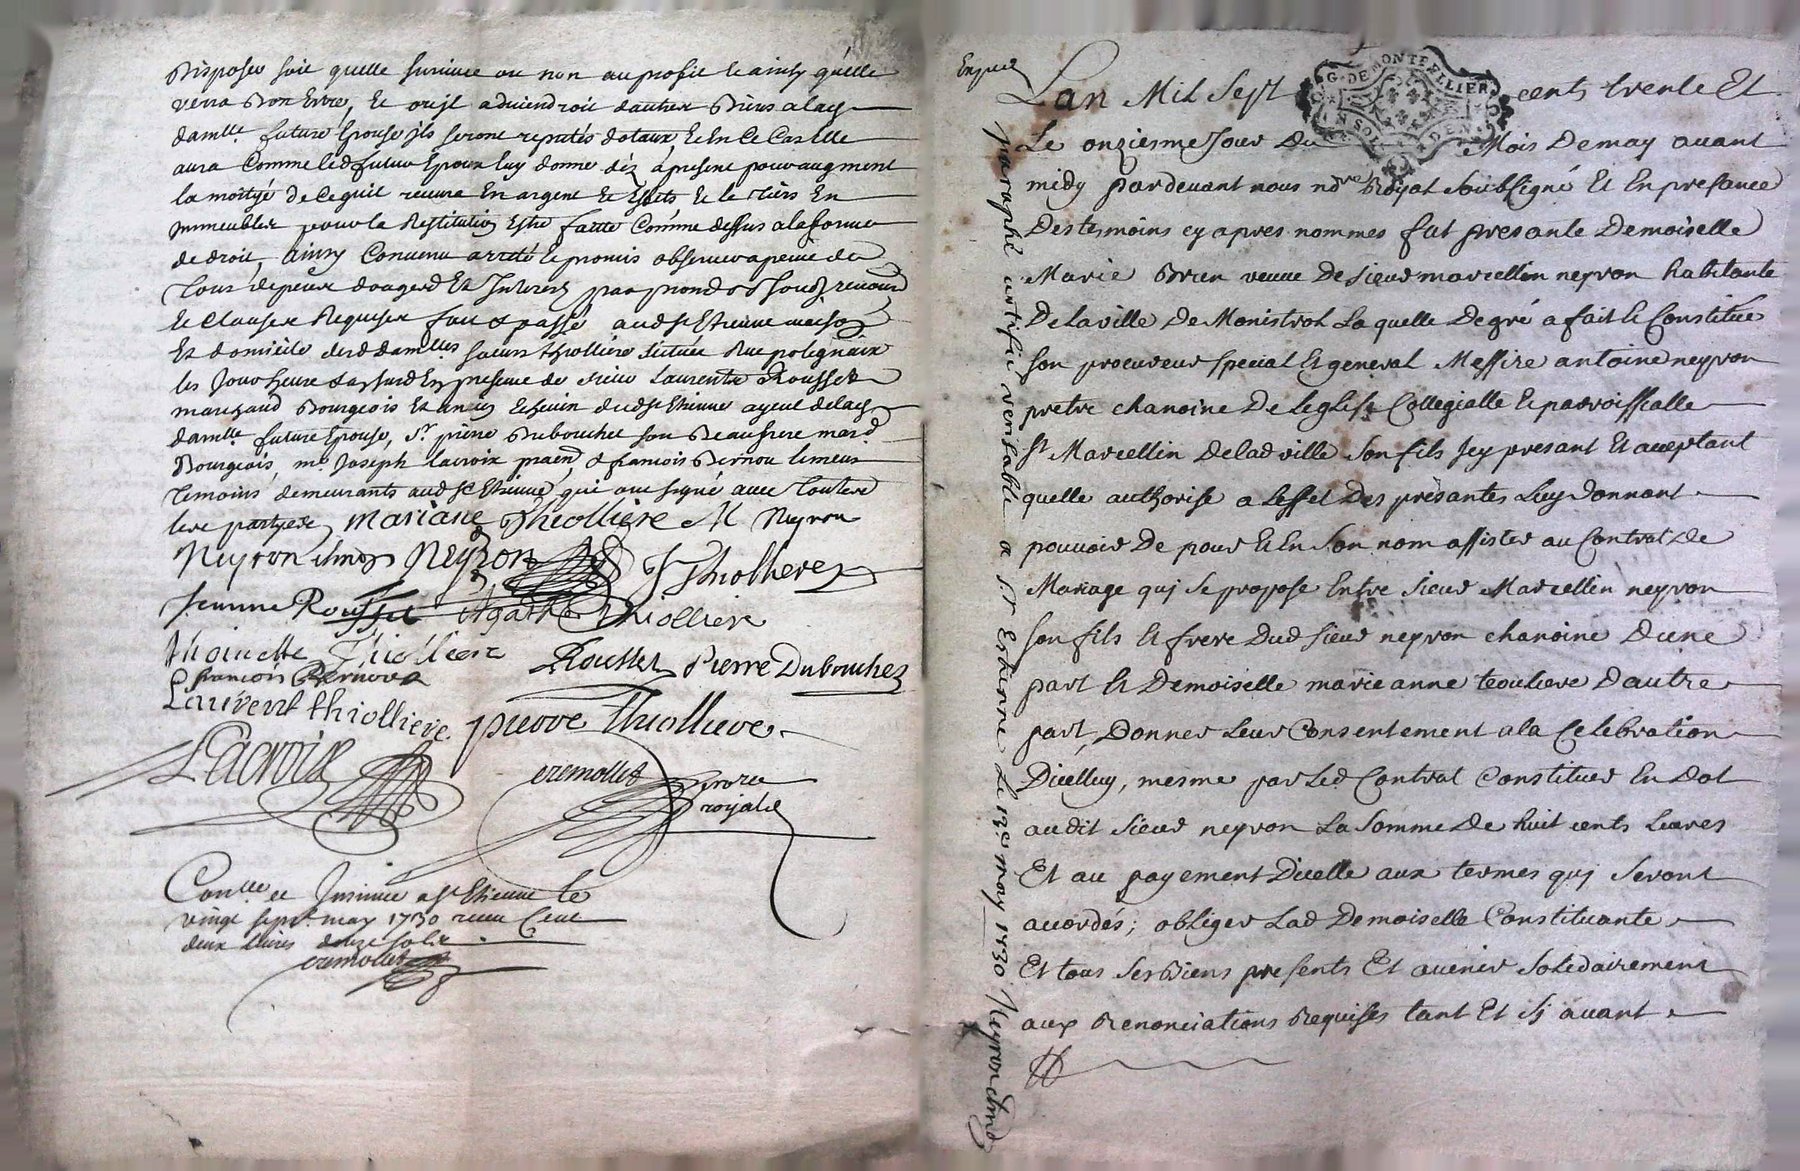 Disposer soit quelle survive ou non au profit de ainsy quelle
verra Bon Estre, et ou jl adviendroit dautres Biens a lad
damlle future Epouse jls seront reputés dotaux, et En Ce Cas elle
aura Comme led futur Epoux luy donne dés apresent pour augment
la moityé de Ce quil recevra En argent et Effets et le tiers En
jmmeubles pour la Restitution Estre faitte Comme dessus a la forme
de droit, ainsy Convenu arreté et promis observer a peine de
tous depens dommages Et Interests
et Clauses Requises fait & passé aud St Etienne maison
Et domicile desd damlles soeurs thiolliere scituée Rue polignaix
les jour heure & an susd En presence de sieur Laurent Rousset
marchand Bourgeois Et ancien Echevin dud St Etienne ayeul de lad
damlle future Epouse, Sr pierre Dubouchet son Beaufrere mard
Bourgeois, me Joseph Lacroix praen & francois Bernou
temoins demeurants aud St Etienne qui ont signé avec toutes
les partyes, mariane Thiolliere M Neyron
Neyron chne Neyron J Thiolliere
Jeanne Rousset Agathe Thiolliere
thoinette Thiolliere Rousset Pierre Dubouchet
francois Bernou
Laurent thiolliere pierre thiolliere
Lacroix cremollet nore
royal
Conlle et Insinué a St Etienne le
vingt sept may 1730 receu Cent
deux livres douze sols
cremollet
Lan Mil Sept cents trente Et
G. DE MONTPELLIER
Le onziesme Jour Du Mois De may avant
midy pardevant nous nore Royal Soubsigné Et En presance
Des tesmoins cy apres nommes fut presante Demoiselle
Marie Brun veuve De Sieur marcellin neyron habitante
De la ville De Monistrol Laquelle De gré a fait et Constitué
son procureur special et general Messire antoine neyron
pretre chanoine De Leglise Collegialle et parroissialle
St Marcellin De lad ville son fils jcy presant et acceptant
quelle authorise a Leffet Des presantes Luy Donnant
pouvoir De pour et En son nom assister au Contrat De
Mariage quj se propose Entre Sieur Marcellin neyron
son fils et frere Dud sieur neyron chanoine D'une
part et Demoiselle marie anne teouliere D'autre
part, Donner Leur Consentement a la Celebration
Dicelluy, mesme par Led Contrat Constituer En Dot
audit Sieur neyron La somme De huit cents Livres
Et au payement Dicelle aux termes quj seront
acordés; obliger Lad Demoiselle Constituante
Et tous ses Biens presents Et avenir solidairement
aux Renonciations Requises tant Et sj avant
paraphé certifié veritable a St Estienne Le 13e may 1730 Neyron chne